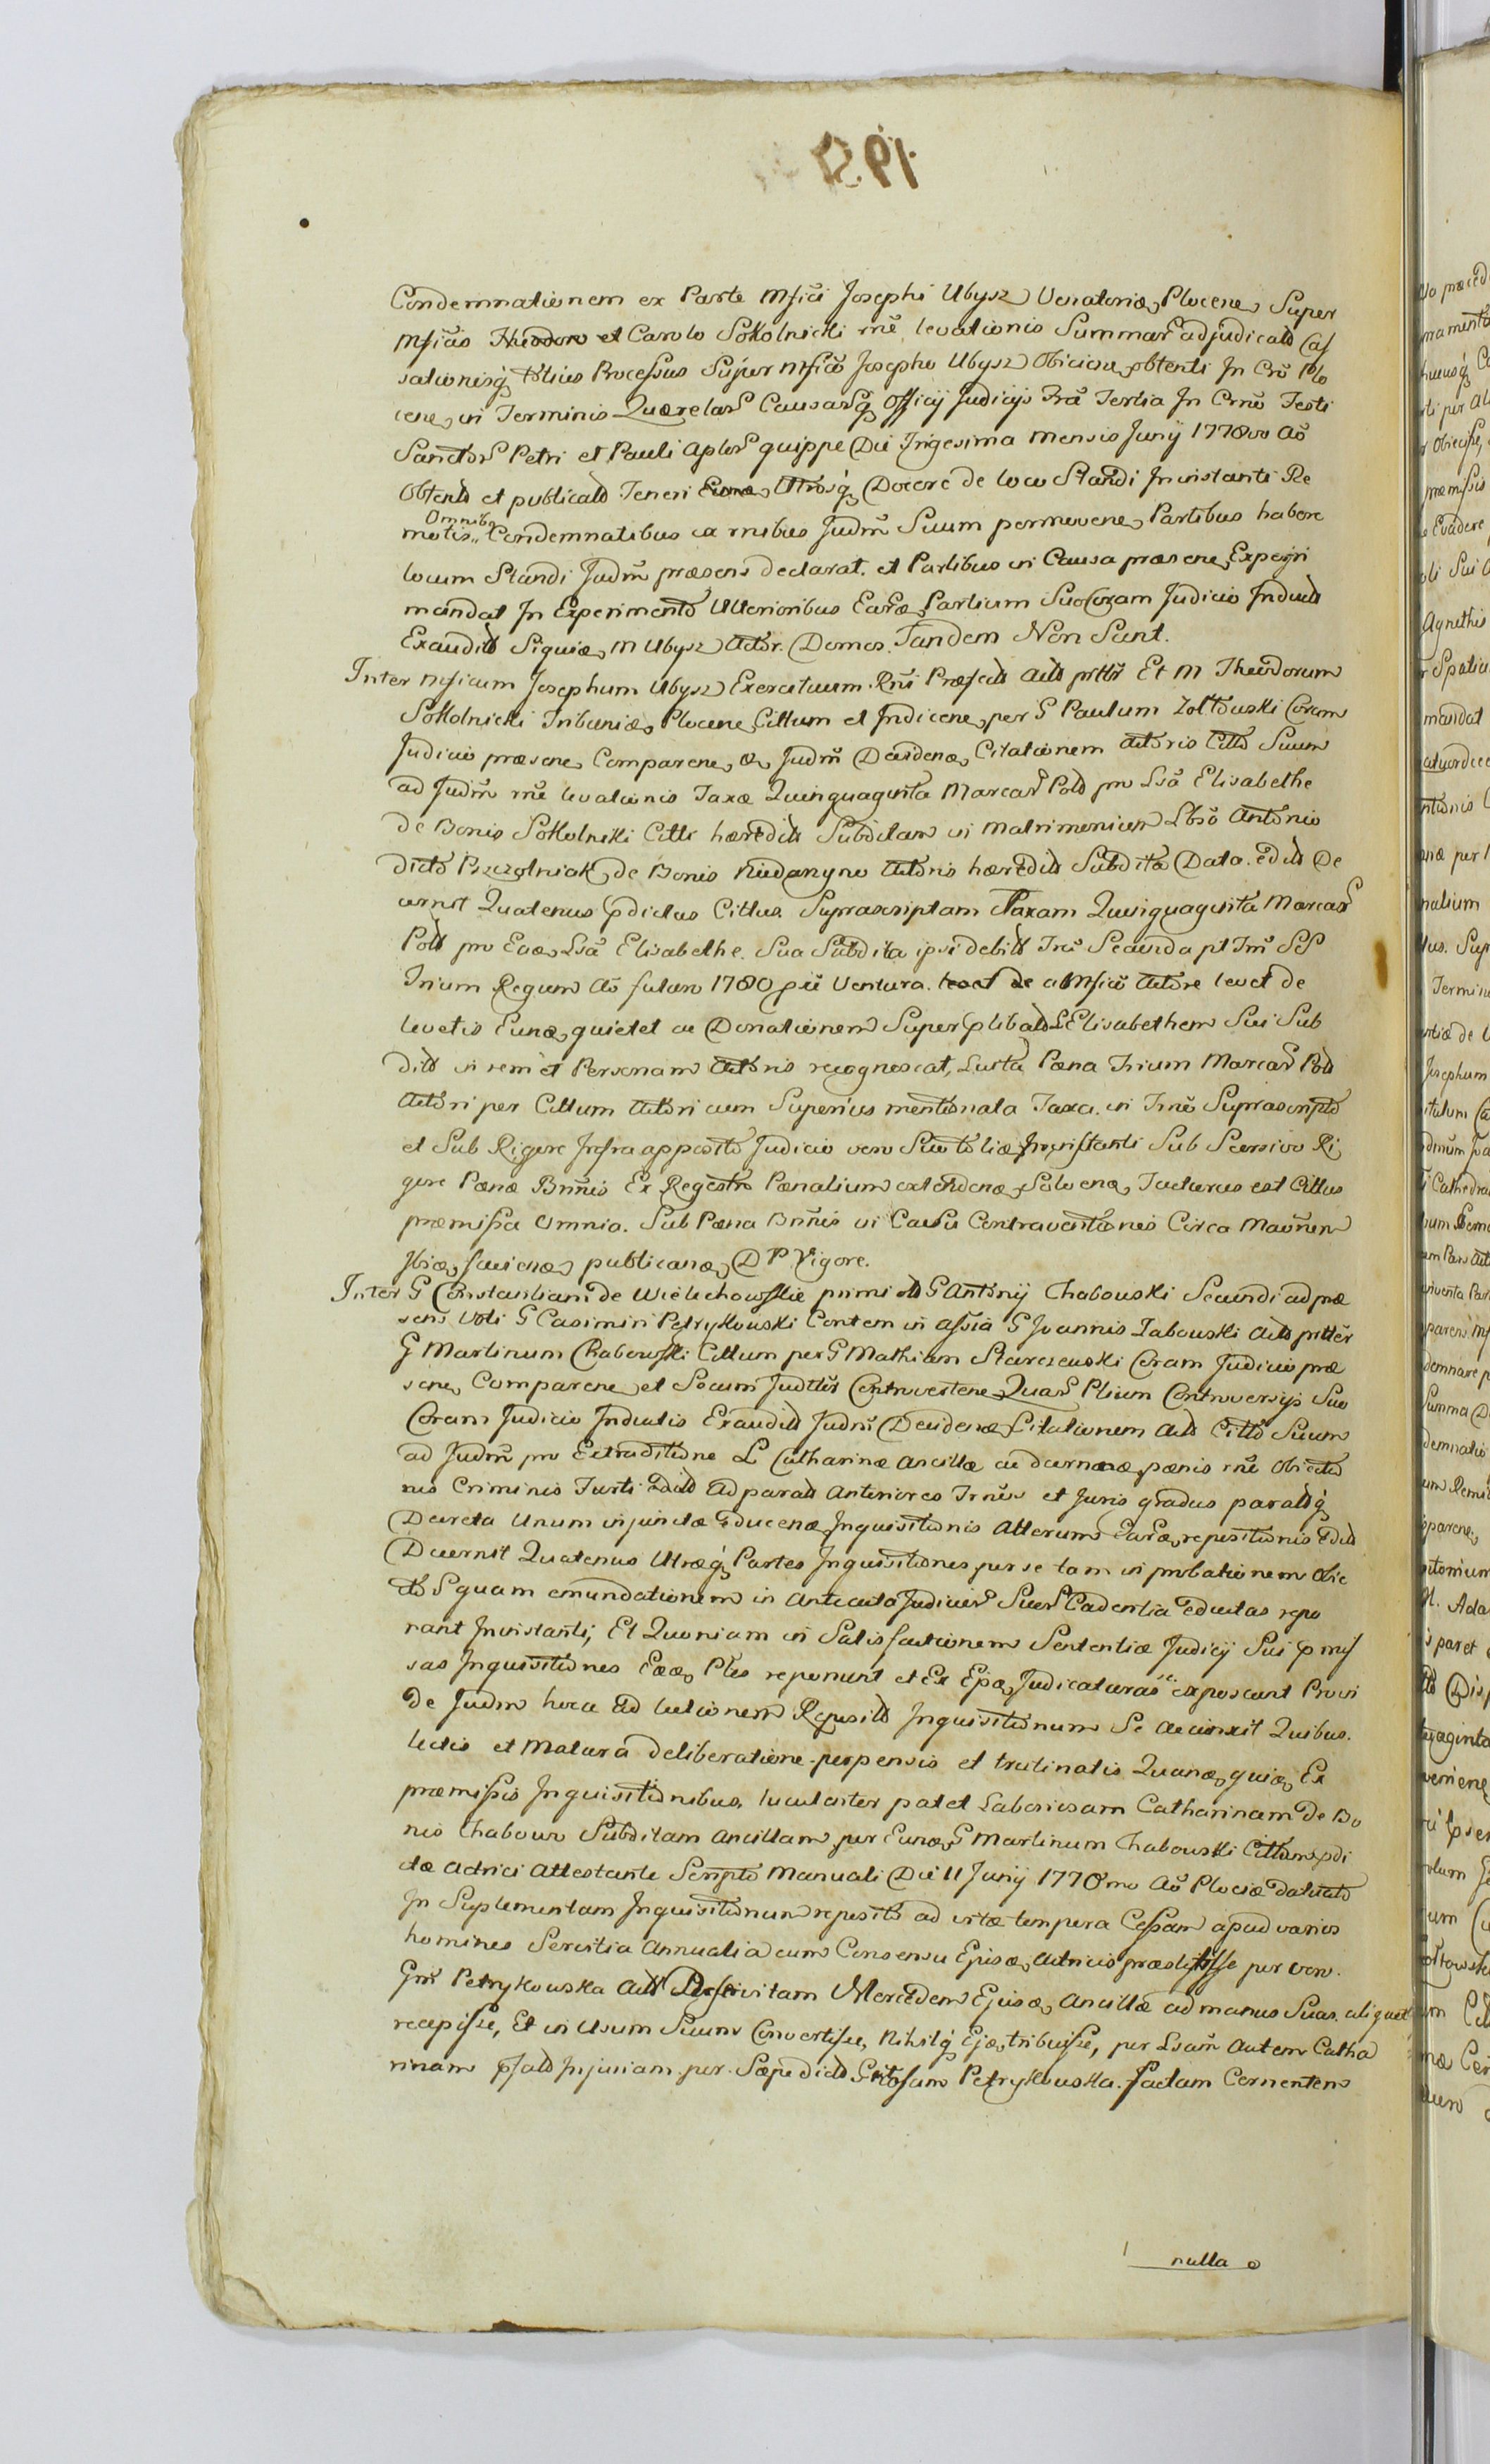 Condemnationem ex Parte Mfici Josephi Ubysz Venatoriæ Plocen Super
Mficis Theodoro et Carolo Sokolnicki rne levationis Summar adjudicat Cas
sationisq totius Processus Super Mfico Josepho Ubysz obtenti In Cro Plo
cen in Terminis Querelar Causarq Officij Judicijs Fra Tertia In Crno Festi
Sanctor Petri et Pauli Aplor quippe Die Trigesima Mensis Junij 1778vo Ao
Obtent et publicat Teneri Utrosq Docere de loco Standi Ininstanti Re
Omnib
motis Condemnatibus ex rnibus Judm Suum permoven Partibus habere
locum Standi Judm præsens declarat. et Partibus in Causa præsen Experiri
mandat In Experimento Ulterioribus Partium Suo Coram Judicio Induct
Exaudit Siquiæ M Ubysz Actor. Domos. Tandem Non Sunt.
Inter Mficum Josephum Ubysz Exercituum Rni Præfect Act prttr Et M Theodorum
Sokolnicki Tribuniæ Plocen Cittum et Indicen per G Paulum Zołtowski Coram
Judicio præsen Comparen Judm Deciden Citationem Actoris Citto Suum
ad Judm rne levationis Taxæ Quinquaginta Marcar Pold pro Lsa Elisabethe
de Bonis Sokolnicki Citti hæredit Subditam in Matrimonium Lbso Antonio
dicto Pszczolniak de Bonis Niedanyno Actoris hæredit Subdito Data edit De
cernit Quatenus pdictus Cittus Suprascriptam Taxam Quinquaginta Marcar
Pold pro Lsa Elisabethe Sua Subdita ipsi debit Secunda pt Fm Sct
Trium Regum Ao futuro 1780 Ventura a Mfico Actore levet de
levatis quietet ac Donationem Super Elisabethem Sui Sub
dit in rem et Personam Actoris recognoscat, Luita Pæna Trium Marcar Pold
Actori per Cittum Actori cum Superius mentionata Taxa in Trno Suprascripto
et Sub Rigore Infra apposito Judicio vero Suo Ininstanti Sub Scersivo Ri
gore Pænæ Bnnis Ex Regestro Pænalium extenden Solven Facturus est Cittus
præmissa Omnia Sub Pæna Bnnis in Casu Contraventionis Circa
publican D P Vigore.
Inter G Constantiam de Wielechowskie primi G Antonij Chabowski Secundi ad præ
sens Voti G Casimiri Petrykowski Contem in Assia G Joannis Zabowski Act prttr
G Martinum Chabowski Cittum per G Mathiam Starczewski Coram Judicio præ
sen Comparen et Secum Judttr Controverten Quar Ptium Controversijs Suo
Coram Judicio Inductis Exaudit Judm Deciden Citationem Act Citto Suum
ad Judm pro Extraditione L Catharinæ Ancillæ ac decernen pænis rne Obiectio
nis Criminis Furti Edit Ad parat Anteriores Trnos et Juris gradus paratq
Decreta Unum injunctæ educen Inquisitionis Alterum repositionis Edit
Decernit Quatenus Utræq Partes Inquisitiones per se tam in probationem Obie
quam emundationem in Antecuto Judicior Suor Cadentia eductas repo
nant Ininstanti, Et Quoniam in Satisfactionem Sententiæ Judicij Sui pmis
sas Inquisitiones Ptes reponunt et Ex Judicaturas exposcunt Proin
de Judm hocce Ad lectionem Reposit Inquisitionum Se accinxit Quibus
lectis et Matura deliberatione perpensis et trutinatis Quan quia Ex
præmissis Inquisitionibus luculenter patet Laboriosam Catharinam de Bo
nis Chabowo Subditam Ancillam per G Martinum Chabowski Cittum pdi
ctæ Actrici Attestante Scripto Manuali Die 11 Junij 1770mo Ao Plociæ datato
In Suplementam Inquisitionum reposito ad vitæ tempora Cessam apud varios
homines Servitia Annualia cum Consensu Actricis præstitisse per vero
Gm Petrykowska Act Mercedem Ancillæ ad manus Suas aliquot
recepisse, Et in Usum Suum Convertisse, Nihilq tribuisse, per Lsam Autem Catha
rinam Injuriam per Sæpedict Petrykowska factam Cernentem
nulla